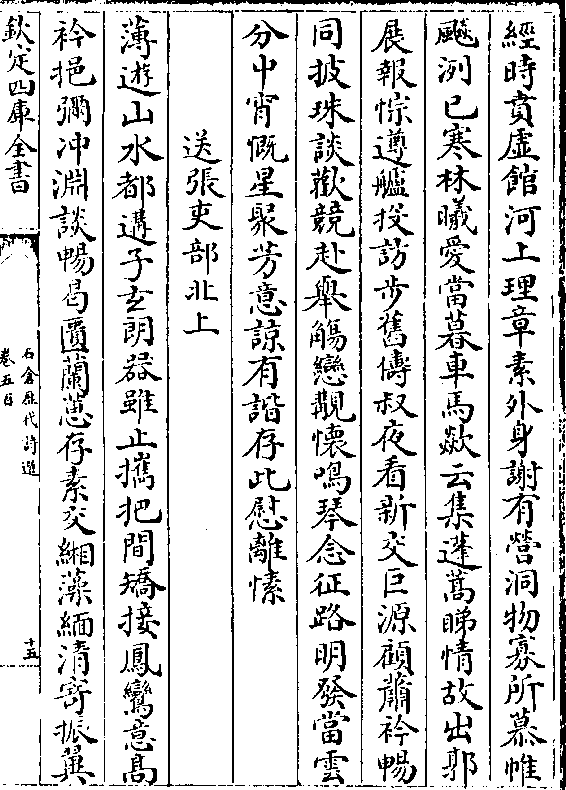 經時賁虛館河上理章素外身謝有營洞物寡所慕帷
颷洌已寒林曦爰當暮車馬欻云集蓬蒿睇情故出郭
展報悰遵艫投訪步舊儔叔夜看新交巨源顧蕭衿暢
同披珠談歡競赴舉觴戀覯懷鳴琴念征路明發當雲
分中宵慨星聚芳意諒有諧存此慰離愫
送張吏部北上
薄遊山水都遘子玄朗器雖止攜把間矯接鳳鸞意高
衿挹彌沖淵談暢曷匱蘭蕙存素交緗藻緬清寄振翼
欽定四庫全書
石倉歷代詩選
卷五百
十五